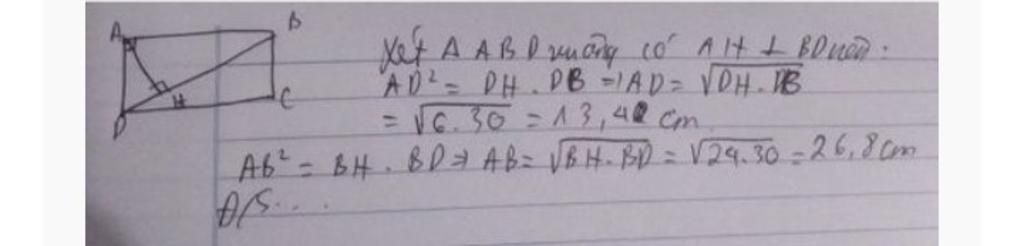 A
B
C
D
H
Xét Δ ABD vuông có AH ⊥ BD nên:
AD² = DH . DB ⇒ AD = √DH.DB
= √6.30 = 13,42 cm
AB² = BH . BD ⇒ AB = √BH.BD = √24.30 = 26,8 cm
Đ/S....